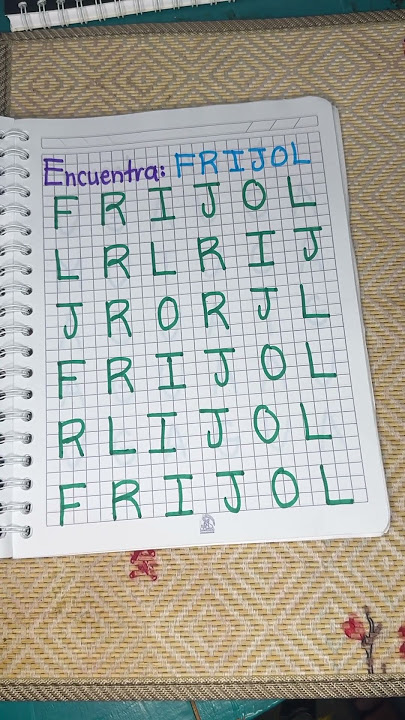 Encuentra: FRIJOL
F R I J O L
L R L R I J
J R O R J L
F R I J O L
R L I J O L
F R I J O L